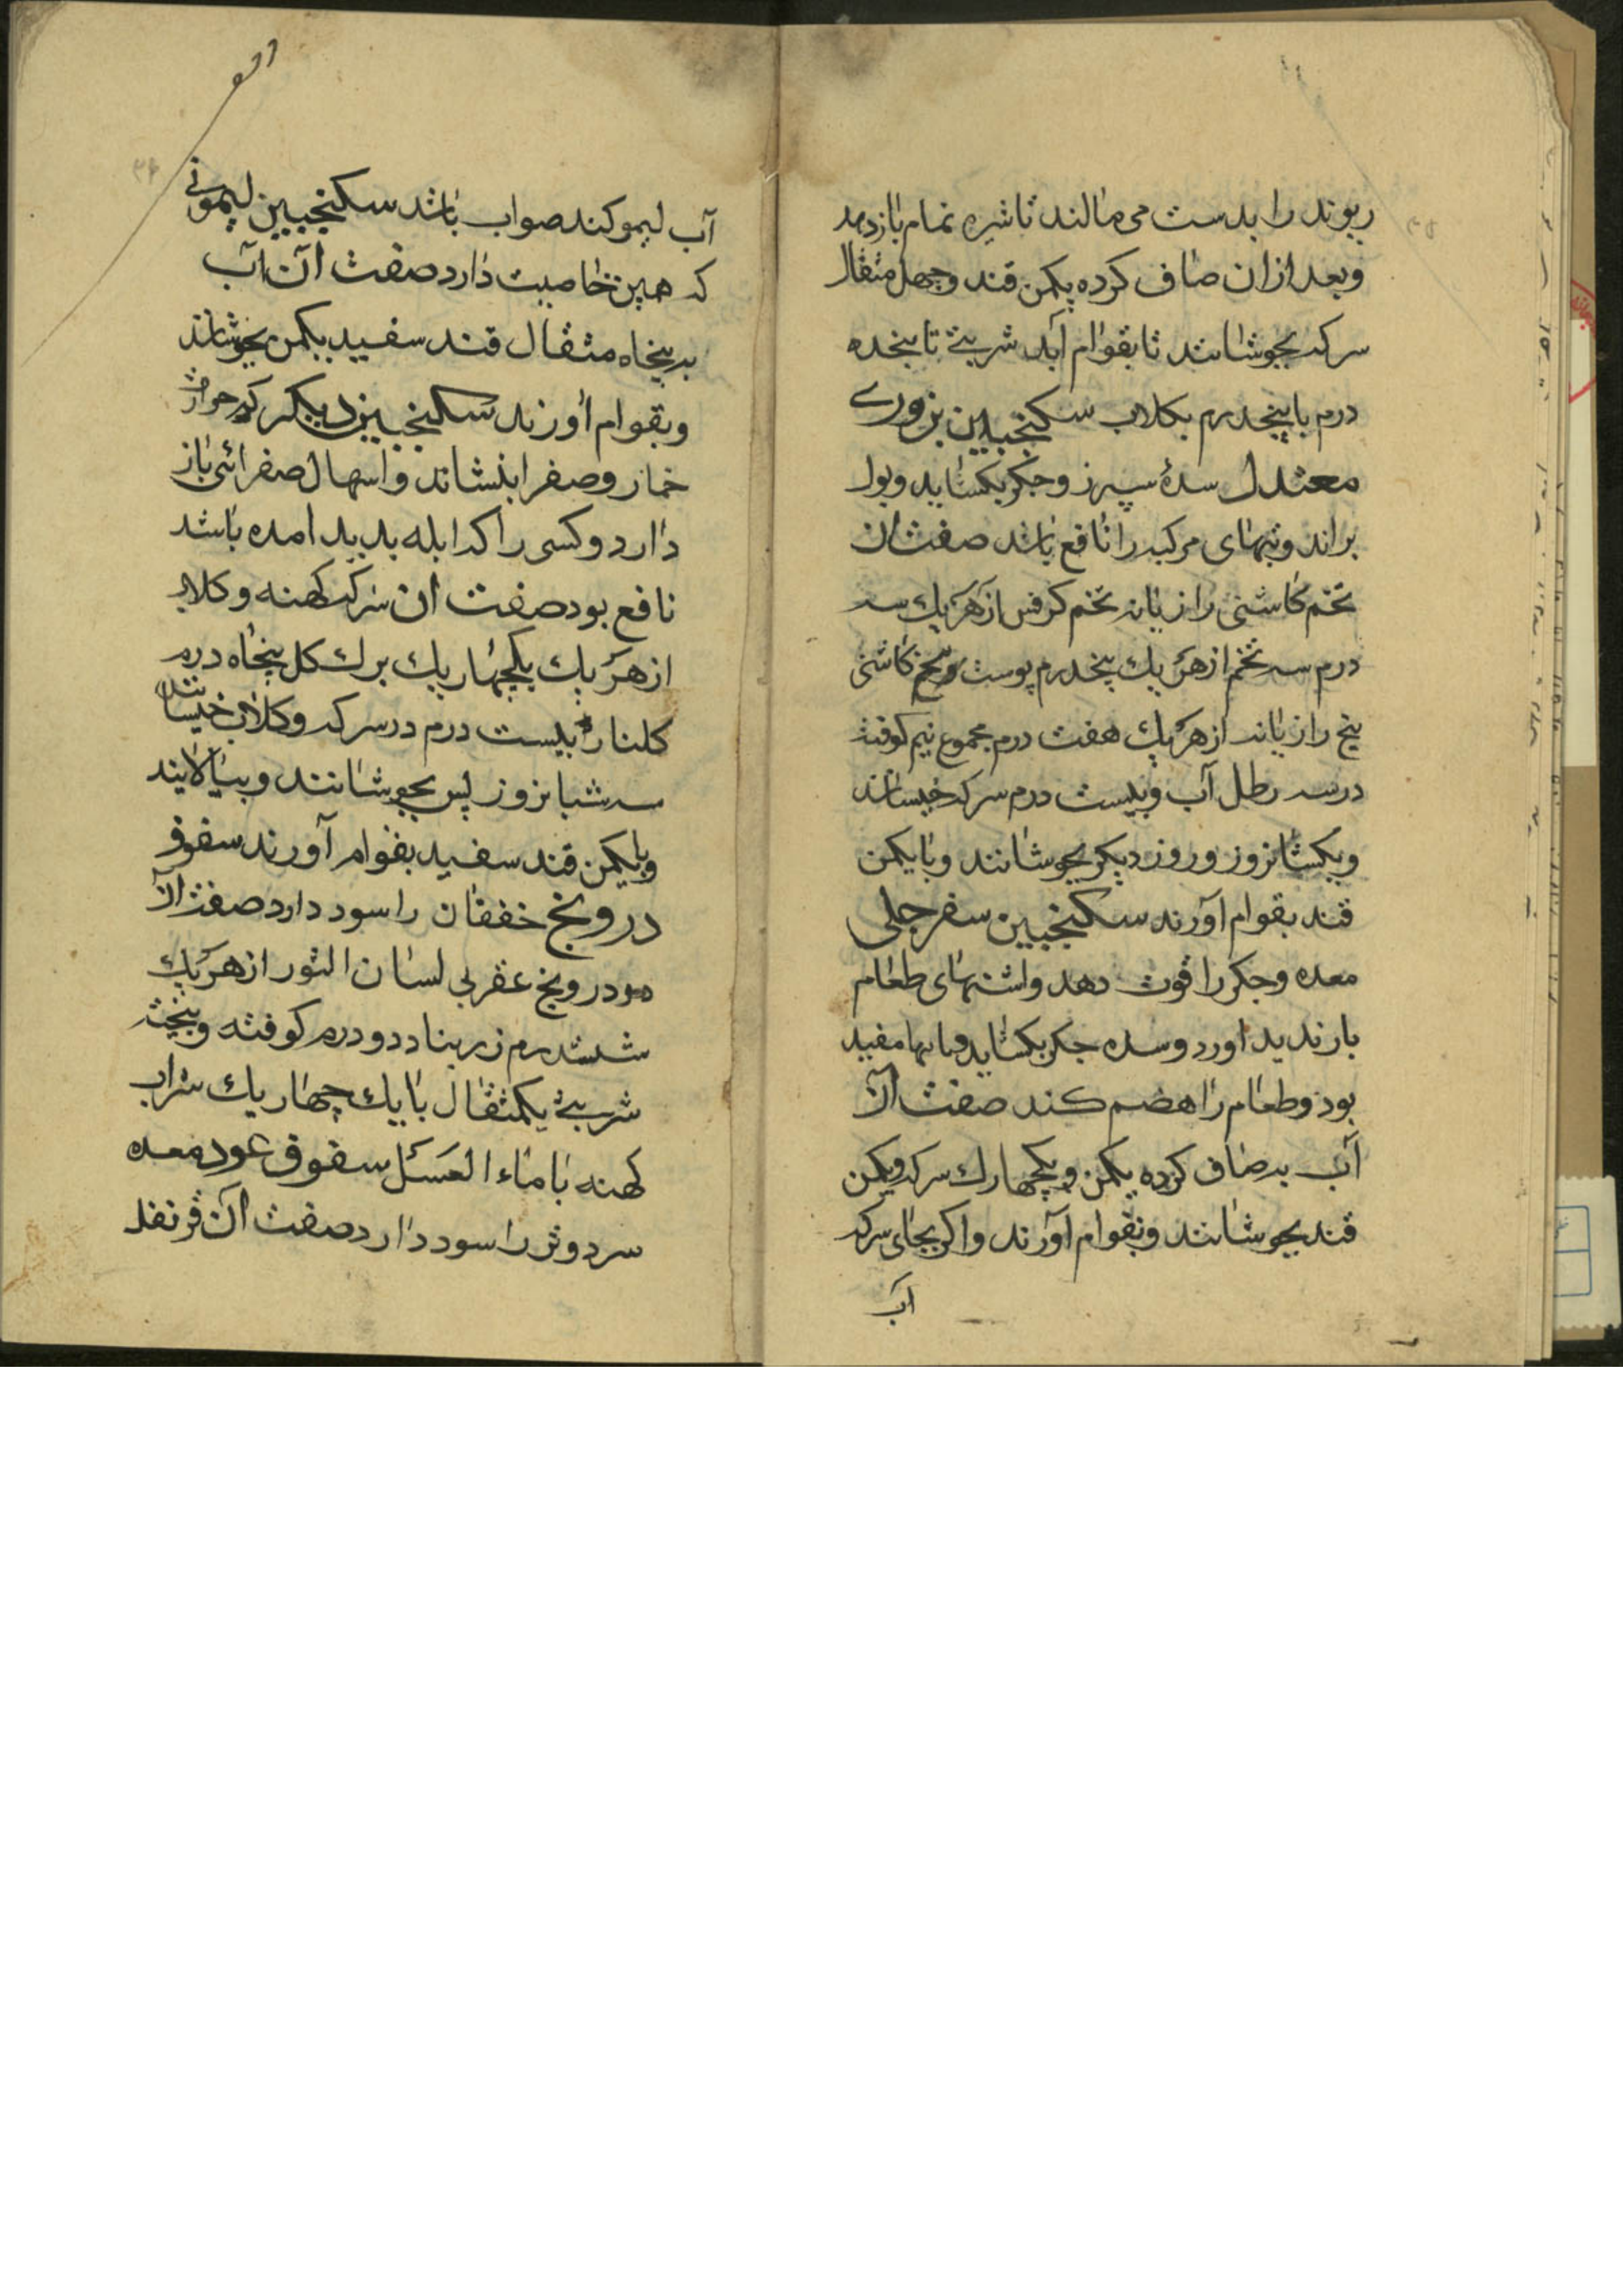 ریوند را بدست می مالند تا شیره تمام بازدهد
وبعد ازان صاف کرده یکمن قند وچهل مثقال
سرکه بجوشانند تا بقوام آید شربتی تا پنجده
درم با پنجدرم بکلاب سکنجبین بزوری
معتدل سدهٔ سپرز وجکر بکشاید وبول
براند وتبهای مرکبه را نافع باشد صفت ان
تخم کاشنی رازیانه تخم کرفس از هر یك سه
درم سه تخم از هر یك پنجدرم پوست بیخ کاشنی
بیخ رازیانه از هر یك هفت درم مجموع نیم کوفته
درسه رطل آب وبیست درم سرکه خیسانند
ویکشبانروز وروز دیکر بجوشانند وبا یکمن
قند بقوام آورند سکنجبین سفرجلی
معده وجکر را قوت دهد واشتهای طعام
باز ندید اورد وسده جکر بکشاید مفید
بود وطعام را هضم کند صفت آن
آب به صاف کرده یکمن ویکچهارك سرکه ویکمن
قند بجوشانند وبقوام آورند واکر بجای سرکه
آب
آب لیمو کند صواب باشد سکنجبین لیموئی
که همین خاصیت دارد صفت آن آب
به پنجاه مثقال قند سفید یکمن بجوشانند
وبقوام آورند سکنجبین دیکر که حرارت
خمار وصفرا بنشاند واسهال صفرائی باز
دارد وکسی را که ابله بدید امده باشد
نافع بود صفت ان سرکه کهنه وکلاب
از هر یك یکچهاریك برك کل پنجاه درم
کلنار بیست درم درسرکه وکلاب خیسانند
سه شبانروز پس بجوشانند وبپالایند
وبا یکمن قند سفید بقوام آورند سفوف
درونج خفقان را سود دارد صفت آن
درونج عقربی لسان الثور از هر یك
ششدرم زرنباد دو درم کوفته وبیخته
شربتی یکمثقال با یك چهاریك شراب
کهنه با ماء العسل سفوف عود معده
سرد وتر را سود دارد صفت آن قرنفل